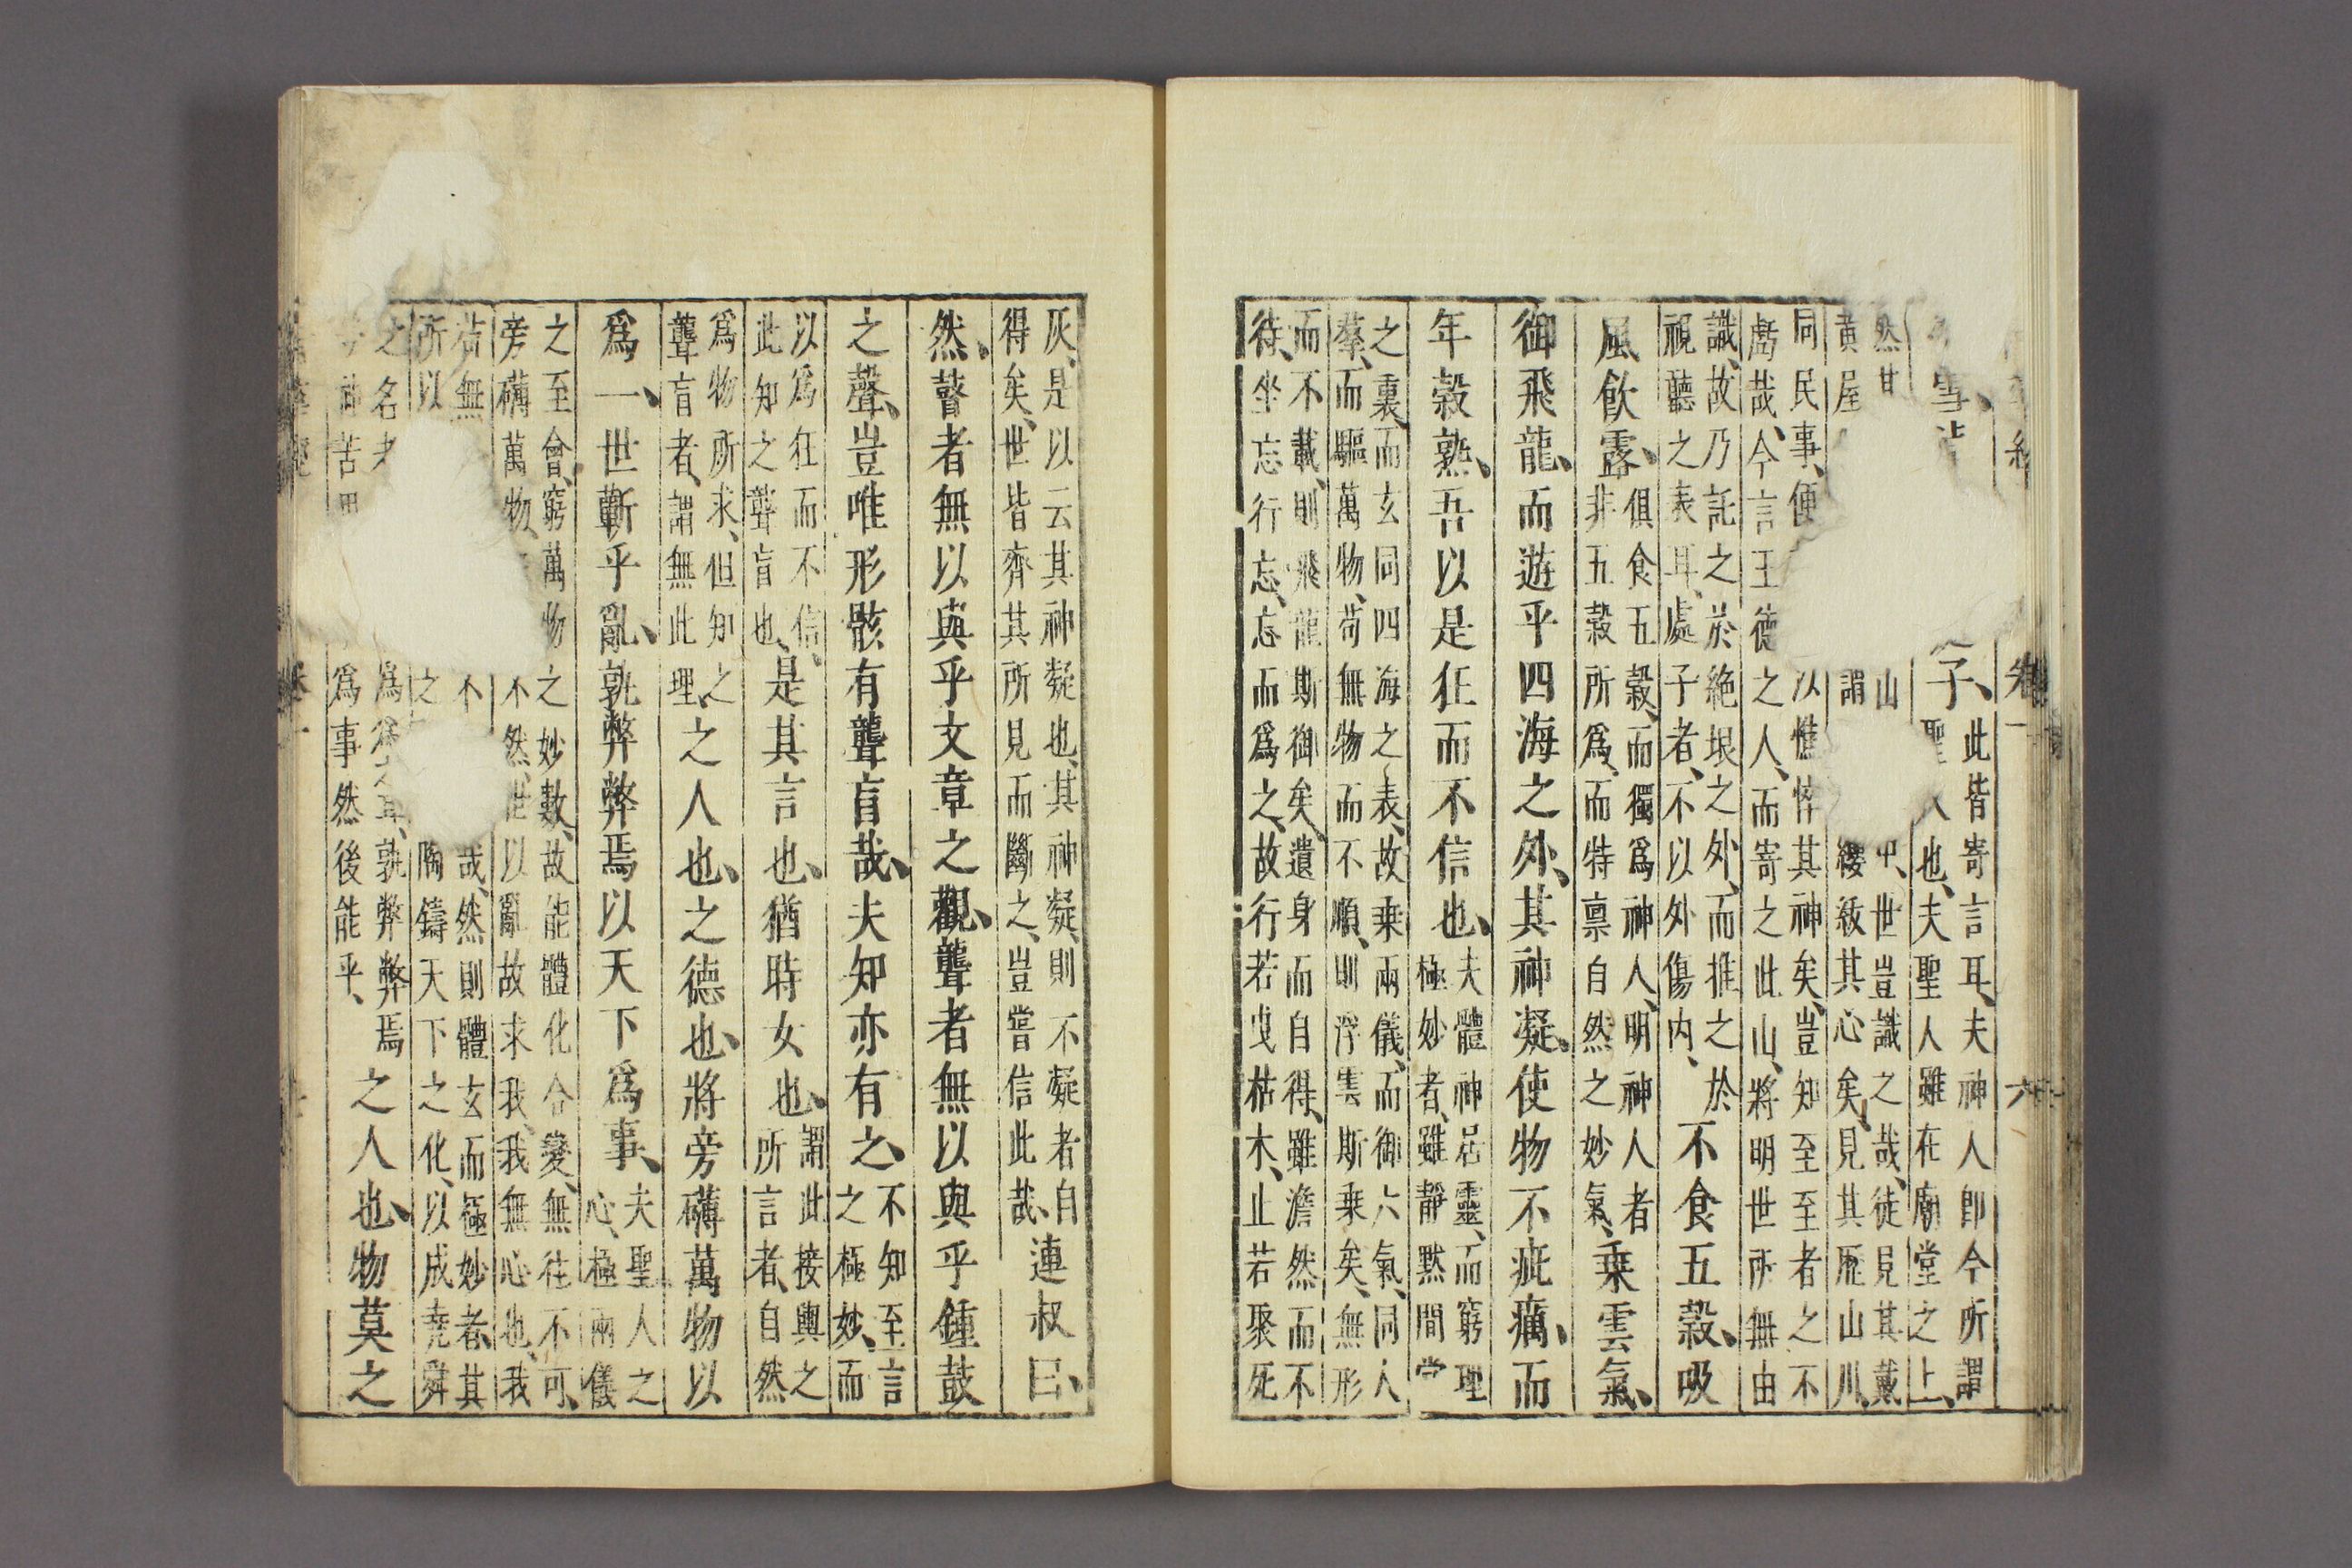 卷一 六
雪
子、此皆寄言耳、夫神人卽今所謂
聖人也、夫聖人雖在廟堂之上、
然其 山 中、世豈識之哉、徒見其戴
黃屋 謂 纓紱其心矣、見其歷山川、
同民事、便 以憔悴其神矣、豈知至至者之不
虧哉、今言王德之人、而寄之此山、將明世所無由
識、故乃託之於絕垠之外、而推之於
視聽之表耳、處子者、不以外傷内、
不食五穀、吸
風飮露、
俱食五穀、而獨爲神人、明神人者
非五穀所爲、而特禀自然之妙氣、
乗雲氣、
御飛龍、而遊乎四海之外、其神凝、使物不疵癘、而
年穀熟、吾以是狂而不信也、
夫體神居靈、而窮理
極妙者、雖靜默間堂
之裏、而玄同四海之表、故乗兩儀、而御六氣、同人
羣、而驅萬物、苟無物而不順、則浮雲斯乗矣、無形
而不載、則飛龍斯御矣、遺身而自得、雖澹然而不
待、坐忘行忘、忘而爲之、故行若曳枯木、止若聚死
灰、是以云其神凝也、其神凝、則不凝者自
得矣、世皆齊其所見而斷之、豈嘗信此哉、
連叔曰、
然、瞽者無以與乎文章之觀、聾者無以與乎鍾鼓
之聲、豈唯形骸有聾盲哉、夫知亦有之、
不知至言
之極妙、而
以爲狂而不信、
此知之聾盲也、
是其言也、猶時女也、
謂此接輿之
所言者、自然
爲物所求、但知之
聾盲者、謂無此理、
之人也、之德也、將旁礴萬物以
爲一、世蘄乎亂、孰弊弊焉以天下爲事、
夫聖人之
心、極兩儀
之至會、窮萬物之妙數、故能體化合變、無往不可、
旁礴萬物、 不然、世以亂故求我、我無心也、我
苟無 不 哉、然則體玄而極妙者、其
所以 之 陶鑄天下之化、以成堯舜
之名者 爲爲之耳、孰弊弊焉
神苦思 爲事然後能乎、
之人也、物莫之
卷一